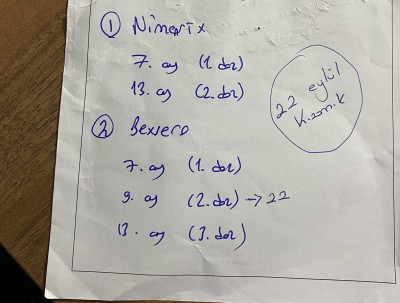 ① Nimenrix
7. ay (1. doz)
13. ay (2. doz)
② Bexsero
7. ay (1. doz)
9. ay (2. doz) → 22
13. ay (3. doz)
22 eylül
K.zam.k